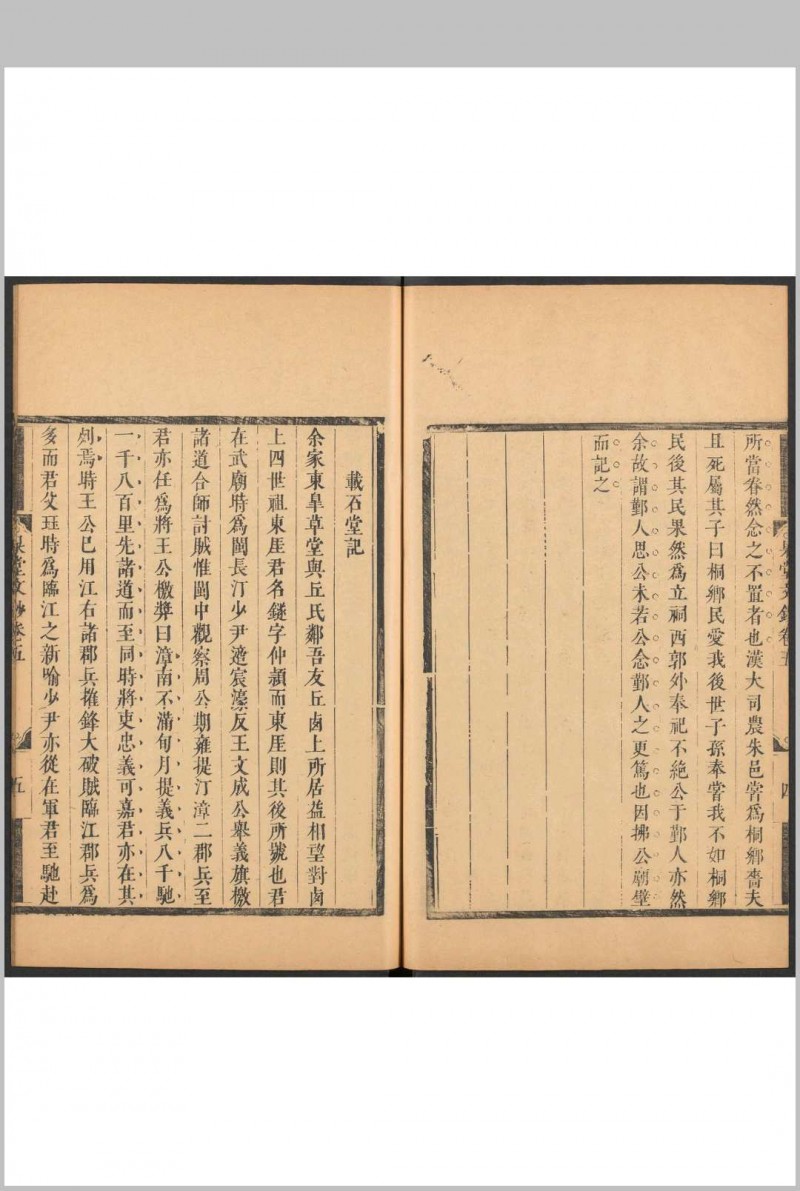 所當眷然念之不置者也漢大司農朱邑嘗爲桐鄉嗇夫
且死屬其子曰桐鄉民愛我後世子孫奉嘗我不如桐鄉
民後其民果然爲立祠西郭外奉祀不絶公于鄞人亦然
余故謂鄞人思公未若公念鄞人之更篤也因拂公祠壁
而記之
四
載石堂記
余家東臯草堂與丘氏鄰吾友丘鹵上所居益相望對鹵
上四世祖東厓君名鐩字仲頴而東厓則其後所號也君
在武廟時爲閩長汀少尹適宸濠反王文成公舉義旗檄
諸道合師討賊惟閩中觀察周公期雍提汀漳二郡兵至
君亦任爲將王公檄獎曰漳南不滿旬月提義兵八千馳
一千八百里先諸道而至同時將吏忠義可嘉君亦在其
列焉時王公已用江右諸郡兵摧鋒大破賊臨江郡兵爲
多而君父珏時爲臨江之新喻少尹亦從在軍君至馳赴
杲堂文鈔卷五
五